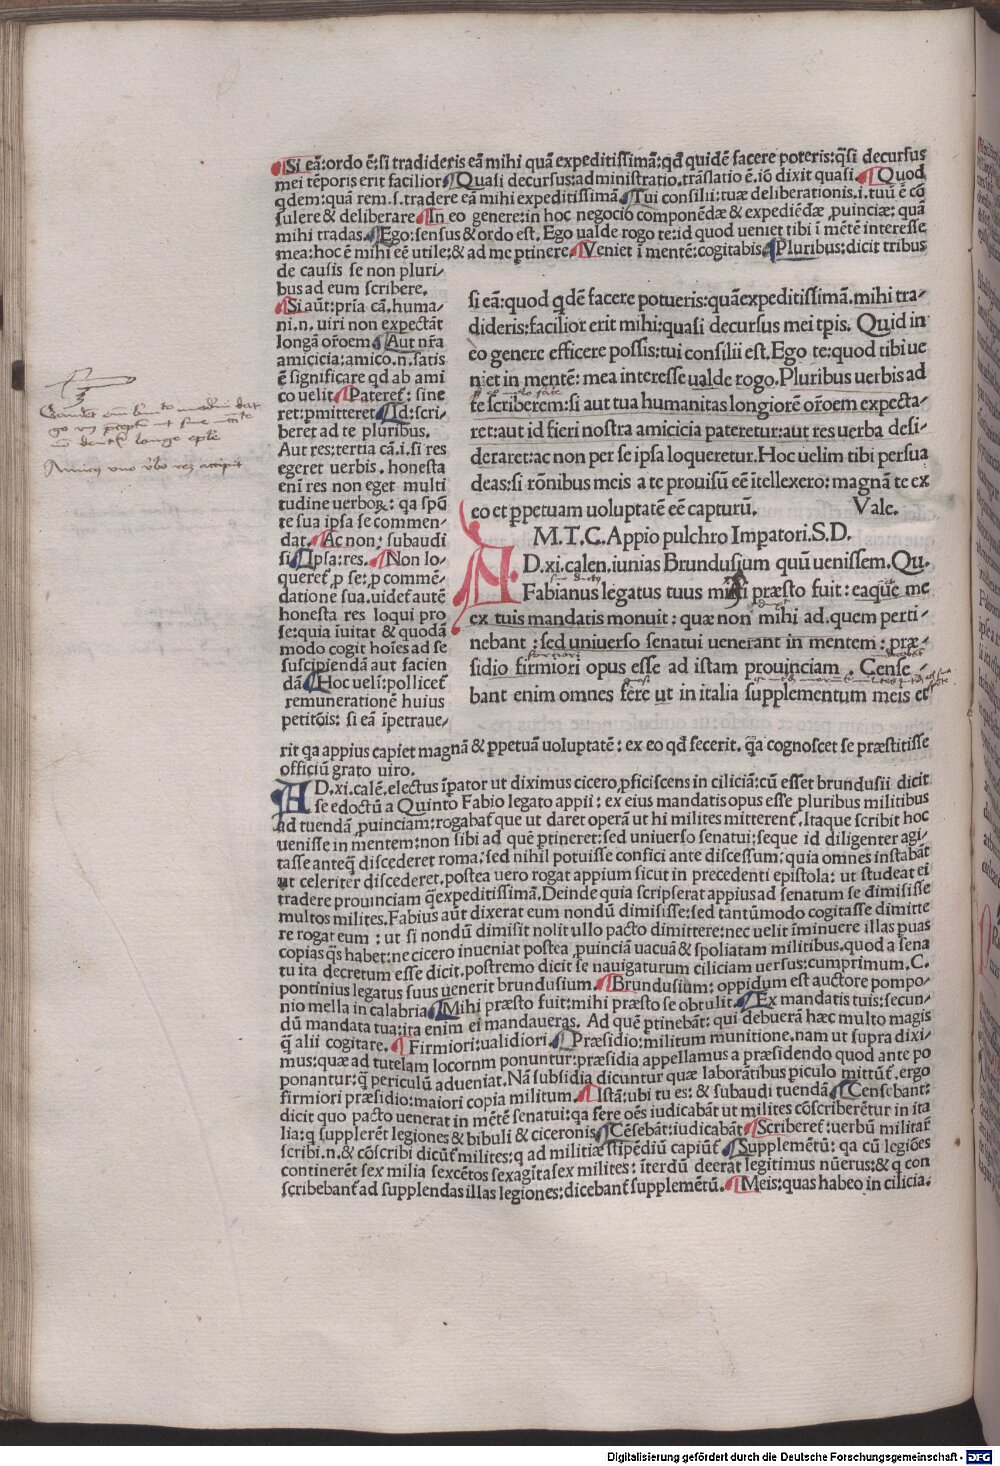 Si eã:ordo ẽ:si tradideris eã mihi quã expeditissimã:qđ quidẽ facere poteris:q̃si decursus
mei tẽporis erit facilior Quasi decursus:administratio.trãslatio ẽ.iõ dixit quasi. Quod
qdem:quã rem.s.tradere eã mihi expeditissimã Tui consilii:tuæ deliberationis.i.tuũ ẽ cõ
sulere & deliberare In eo genere:in hoc negocio componẽdæ & expediẽdæ ꝓuinciæ: quã
mihi tradas. Ego:sensus & ordo est. Ego ualde rogo te:id quod ueniet tibi ĩ mẽtẽ interesse
mea:hoc ẽ mihi eẽ utile:& ad me ꝑtinere Veniet ĩ mentẽ:cogitabis Pluribus:dicit tribus
de causis se non pluri-
bus ad eum scribere.
Si aũt:pria cã.huma-
ni.n.uiri non expectãt
longã oroẽm Aut nr̃a
amicicia:amico.n.satis
ẽ significare qd ab ami
co uelit Pateret᷑: sine
ret:ꝑmitteret Id:scri-
beret ad te pluribus.
Aut res:tertia cã.i.si res
egeret uerbis.honesta
enĩ res non eget multi
tudine uerboꝝ: qa spõ
te sua ipsa se commen-
dat. Ac non: subaudi
si Ipsa:res. Non lo-
queret᷑ ꝑ se:ꝑ commẽ-
datione sua.uidet᷑ autẽ
honesta res loqui pro
se:quia iuitat & quodã
modo cogit hoĩes ad se
suscipiendã aut facien
dã Hoc uelĩ:pollicet᷑
remunerationẽ huius
petitõis: si eã ĩpetraue-
si eã:quod qdẽ facere potueris:quãexpeditissimã.mihi tra-
dideris:facilior erit mihi:quasi decursus mei tꝑis. Quid in
eo genere efficere possis:tui consilii est.Ego te:quod tibi ue
niet in mentẽ: mea interesse ualde rogo.Pluribus uerbis ad
te scriberem:si aut tua humanitas longiorẽ oroẽm expecta-
ret:aut id fieri nostra amicicia pateretur:aut res uerba desi-
deraret:ac non per se ipsa loqueretur.Hoc uelim tibi persua
deas:si rõnibus meis a te prouisũ eẽ ĩtellexero:magnã te ex
eo et ꝑpetuam uoluptatẽ eẽ capturũ. Vale.
M.T.C.Appio pulchro Imꝑatori.S.D.
AD.xi.calen.iunias Brundusium quũ uenissem.Qu.
Fabianus legatus tuus mihi præsto fuit: eaque me
ex tuis mandatis monuit : quæ non mihi ad.quem perti-
nebant : sed uniuerso senatui uenerant in mentem : præ-
sidio firmiori opus esse ad istam prouinciam . Cense-
bant enim omnes fere ut in italia supplementum meis et
rit qa appius capiet magnã & ꝑpetuã uoluptatẽ: ex eo qđ fecerit. q̃a cognoscet se præstitisse
officiũ grato uiro.
AD.xi.calẽ.electus ĩꝑator ut diximus cicero ꝓficiscens in ciliciã:cũ esset brundusii dicit
se edoctũ a Quinto Fabio legato appii: ex eius mandatis opus esse pluribus militibus
ad tuendã ꝓuinciam:rogabat᷑ que ut daret operã ut hi milites mitterent᷑.Itaque scribit hoc
uenisse in mẽntem:non sibi ad quẽ ꝑtineret:sed uniuerso senatui:seque id diligenter agi-
tasse anteq̃ discederet roma:sed nihil potuisse confici ante discessum:quia omnes instabãt
ut celeriter discederet.postea uero rogat appium sicut in precedenti epistola: ut studeat ei
tradere prouinciam q̃expeditissimã.Deinde quia scripserat appius ad senatum se dimisisse
multos milites.Fabius aũt dixerat eum nondũ dimisisse:sed tantũmodo cogitasse dimitte
re rogat eum : ut si nondũ dimisit nolit ullo pacto dimittere:nec uelit ĩminuere illas ꝑuas
copias q̃s habet:ne cicero inueniat postea ꝓuinciã uacuã & spoliatam militibus.quod a sena
tu ita decretum esse dicit.postremo dicit se nauigaturum ciliciam uersus:cumprimum.C.
pontinius legatus suus uenerit brundusium. Brundusium: oppidum est auctore pompo-
nio mella in calabria Mihi præsto fuit:mihi præsto se obtulit Ex mandatis tuis:secun-
dũ mandata tua:ita enim ei mandaueras. Ad quẽ ꝑtinebãt: qui debuerã hæc multo magis
q̃ alii cogitare. Firmiori:ualidiori. Præsidio:militum munitione.nam ut supra dixi-
mus:quæ ad tutelam locornm ponuntur:præsidia appellamus a præsidendo quod ante po
ponantur:q̃ periculũ adueniat.Nã subsidia dicuntur quæ laborãtibus ꝑiculo mittũt᷑.ergo
firmiori præsidio:maiori copia militum. Istã:ubi tu es: & subaudi tuendã Censebant:
dicit quo pacto uenerat in mẽtẽ senatui:qa fere oẽs iudicabãt ut milites cõscriberẽtur in ita
lia:q supplerẽt legiones & bibuli & ciceronis Cẽsebãt:iudicabãt Scriberet᷑:uerbũ militar᷑
scribi.n.& cõscribi dicũt᷑ milites:q ad militiæ stipẽdiũ capiũt᷑ Supplemẽtũ: qa cũ legiões
continerẽt sex milia sexcẽtos sexagĩta sex milites : ĩterdũ deerat legitimus nũerus:& q con
scribebant᷑ ad supplendas illas legiones:dicebant᷑ supplemẽtũ. Meis:quas habeo in cilicia:
Digitalisierung gefördert durch die Deutsche Forschungsgemeinschaft - DFG